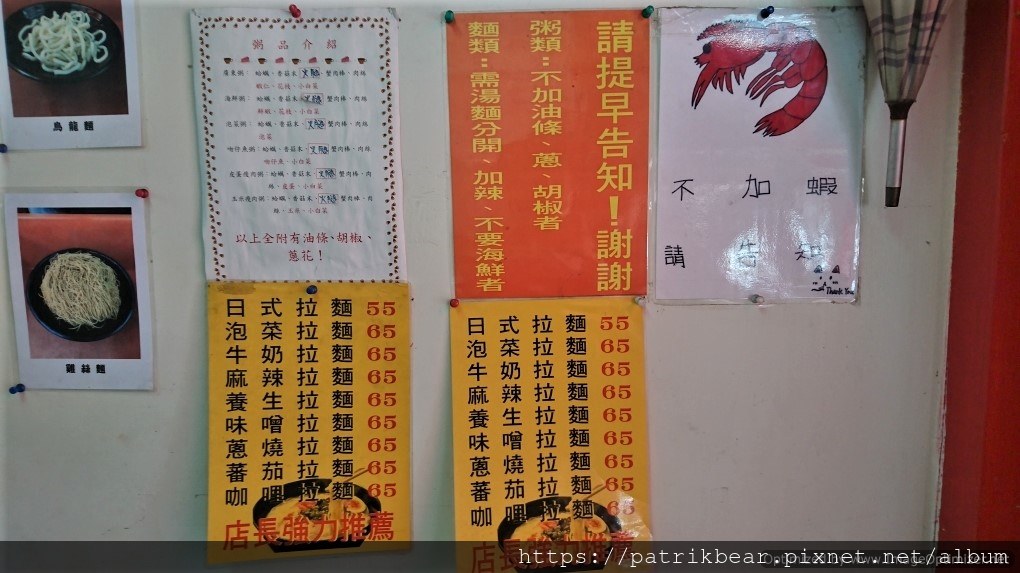 烏龍麵
雞絲麵
粥品介紹
廣東粥：蛤蠣、香菇末、火腿、蟹肉棒、肉絲
蝦仁、花枝、小白菜
海鮮粥：蛤蠣、香菇末、火腿、蟹肉棒、肉絲
鮮蚵、花枝、小白菜
泡菜粥：蛤蠣、香菇末、火腿、蟹肉棒、肉絲
泡菜
吻仔魚粥：蛤蠣、香菇末、火腿、蟹肉棒、肉絲
吻仔魚、小白菜
皮蛋瘦肉粥：蛤蠣、香菇末、火腿、蟹肉棒、肉
絲、皮蛋、小白菜
玉米瘦肉粥：蛤蠣、香菇末、火腿、蟹肉棒、肉
絲、玉米、小白菜
以上全附有油條、胡椒、
蔥花！
日式拉麵 55
泡菜拉麵 65
牛奶拉麵 65
麻辣拉麵 65
養生拉麵 65
味噌拉麵 65
蔥燒拉麵 65
蕃茄拉麵 65
咖哩拉麵 65
店長強力推薦
請提早告知！謝謝
粥類：不加油條、蔥、胡椒者
麵類：需湯麵分開、加辣、不要海鮮者
日式拉麵 55
泡菜拉麵 65
牛奶拉麵 65
麻辣拉麵 65
養生拉麵 65
味噌拉麵 65
蔥燒拉麵 65
蕃茄拉麵 65
咖哩拉麵 65
店長強力推薦
不加蝦
請告知
Thank You
https://patrikbear.pixnet.net/album
Optimized by www.ImageOptimizer.net